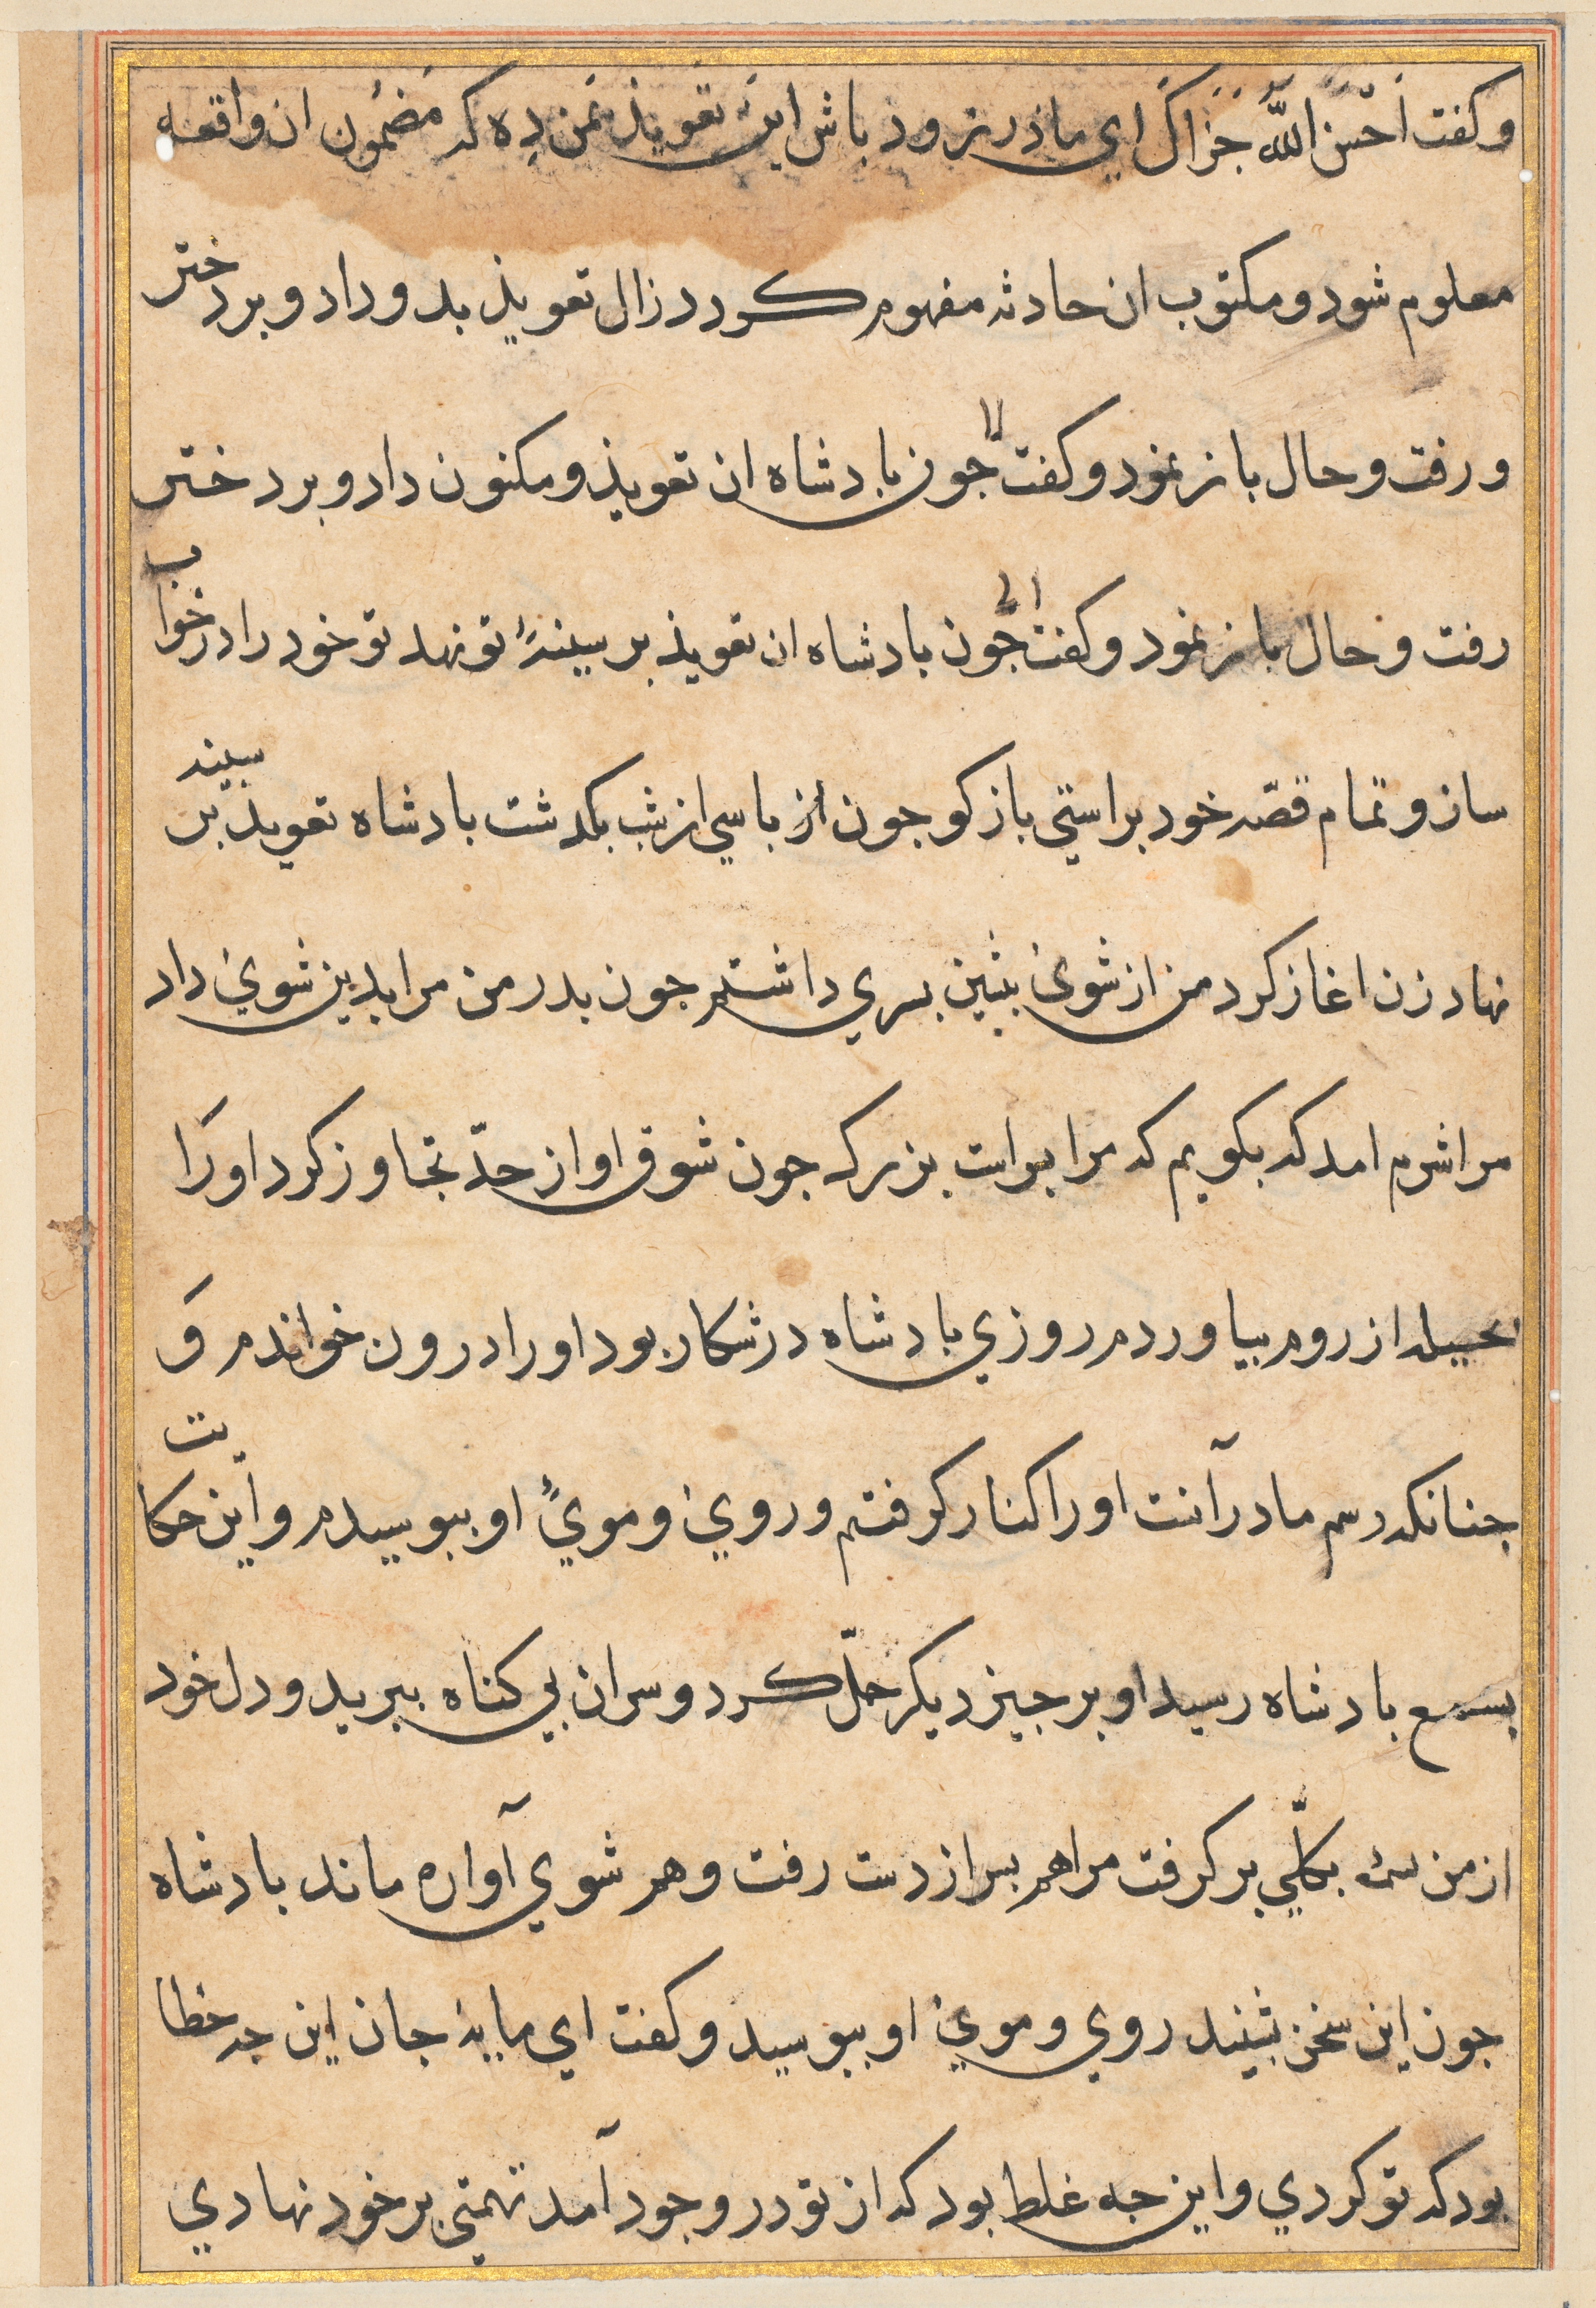 و کفت احسن الله جزاک ای ماذر زود باش این تعویذ بمن ده که مضمون ان واقعه
معلوم شود و مکتوب ان حادثه مفهوم کردد زال تعویذ بدو داد و بر دختر
و رفت و حال باز نمود و کفت جون بادشاه ان تعویذ و مکنون داد و بر دختر
رفت و حال باز نمود و کفت جون بادشاه ان تعویذ بر سینهٔ تو نهد تو خود را در خواب
ساز و تمام قصّه خود براستی باز کو جون از باسی از شب بکذشت بادشاه تعویذ بر سینه
نهاد زن اغاز کرد من از شوئ بیشین بسری داشتم جون بدر من مرا بدین شوی داد
مرا شرم امد که بکویم که مرا بسر است بزرک جون شوق او از حدّ تجاوز کرد او را
بحیله از روم بیاوردم روزی بادشاه در شکار بود او را درون خواندم وَ
جنانکه رسم مادر آنست او را کنار کرفتم و روی و موی او ببوسیدم و این حکایت
بسمع بادشاه رسید او بر جیز دیکر حمل کرد و سر ان بی کناه ببرید و دل خود
از من بکلّی بر کرفت مرا هم بسر از دست رفت و هم شوی آواره ماند بادشاه
جون این سخن بشنید روی و موی او ببوسید و کفت ای مایهٔ جان این جه خطا
بود که تو کردی و این جه غلط بود که از تو در وجود آمد تهمتی بر خود نهادی